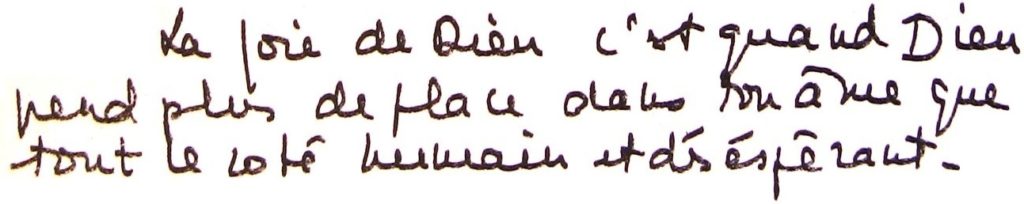 La joie de Dieu c'est quand Dieu
prend plus de place dans ton âme que
tout le coté humain et déséspérant.